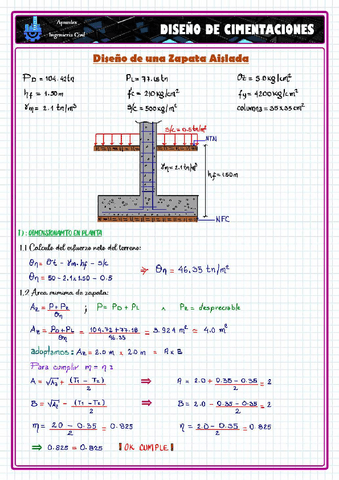 Apuntes
Ingeniería Civil
DISEÑO DE CIMENTACIONES
Diseño de una Zapata Aislada
PD = 104.42tn PL = 77.18tn σt = 5.0kg/cm²
hf = 1.50m f'c = 210kg/cm² fy = 4200kg/cm²
γm = 2.1 tn/m³ s/c = 500kg/m² columna = 35x35cm²
s/c = 0.5tn/m²
NTN
γm = 2.1 tn/m³
hf = 1.50m
NFC
1): DIMENSIONAMTO EN PLANTA
1.1 Calculo del esfuerzo neto del terreno:
σn = σt - γm.hf - s/c
σn = 50 - 2.1x1.50 - 0.5 ⇒ σn = 46.35 tn/m²
1.2 Area minima de zapata:
Az = P + Pz / σn ; P = PD + PL ∧ Pz = despreciable
Az = PD + PL / σn = 104.72 + 77.18 / 46.35 = 3.924 m² ≈ 4.0 m²
adoptamos: Az = 2.0 m x 2.0 m = A x B
Para cumplir m = n
A = √Az + (T1 - T2) / 2 ⇒ A = 2.0 + 0.35 - 0.35 / 2 = 2
B = √Az - (T1 - T2) / 2 ⇒ B = 2.0 - 0.35 - 0.35 / 2 = 2
m = 2.0 - 0.35 / 2 = 0.825 n = 2.0 - 0.35 / 2 = 0.825
⇒ 0.825 = 0.825 ¡OK CUMPLE!